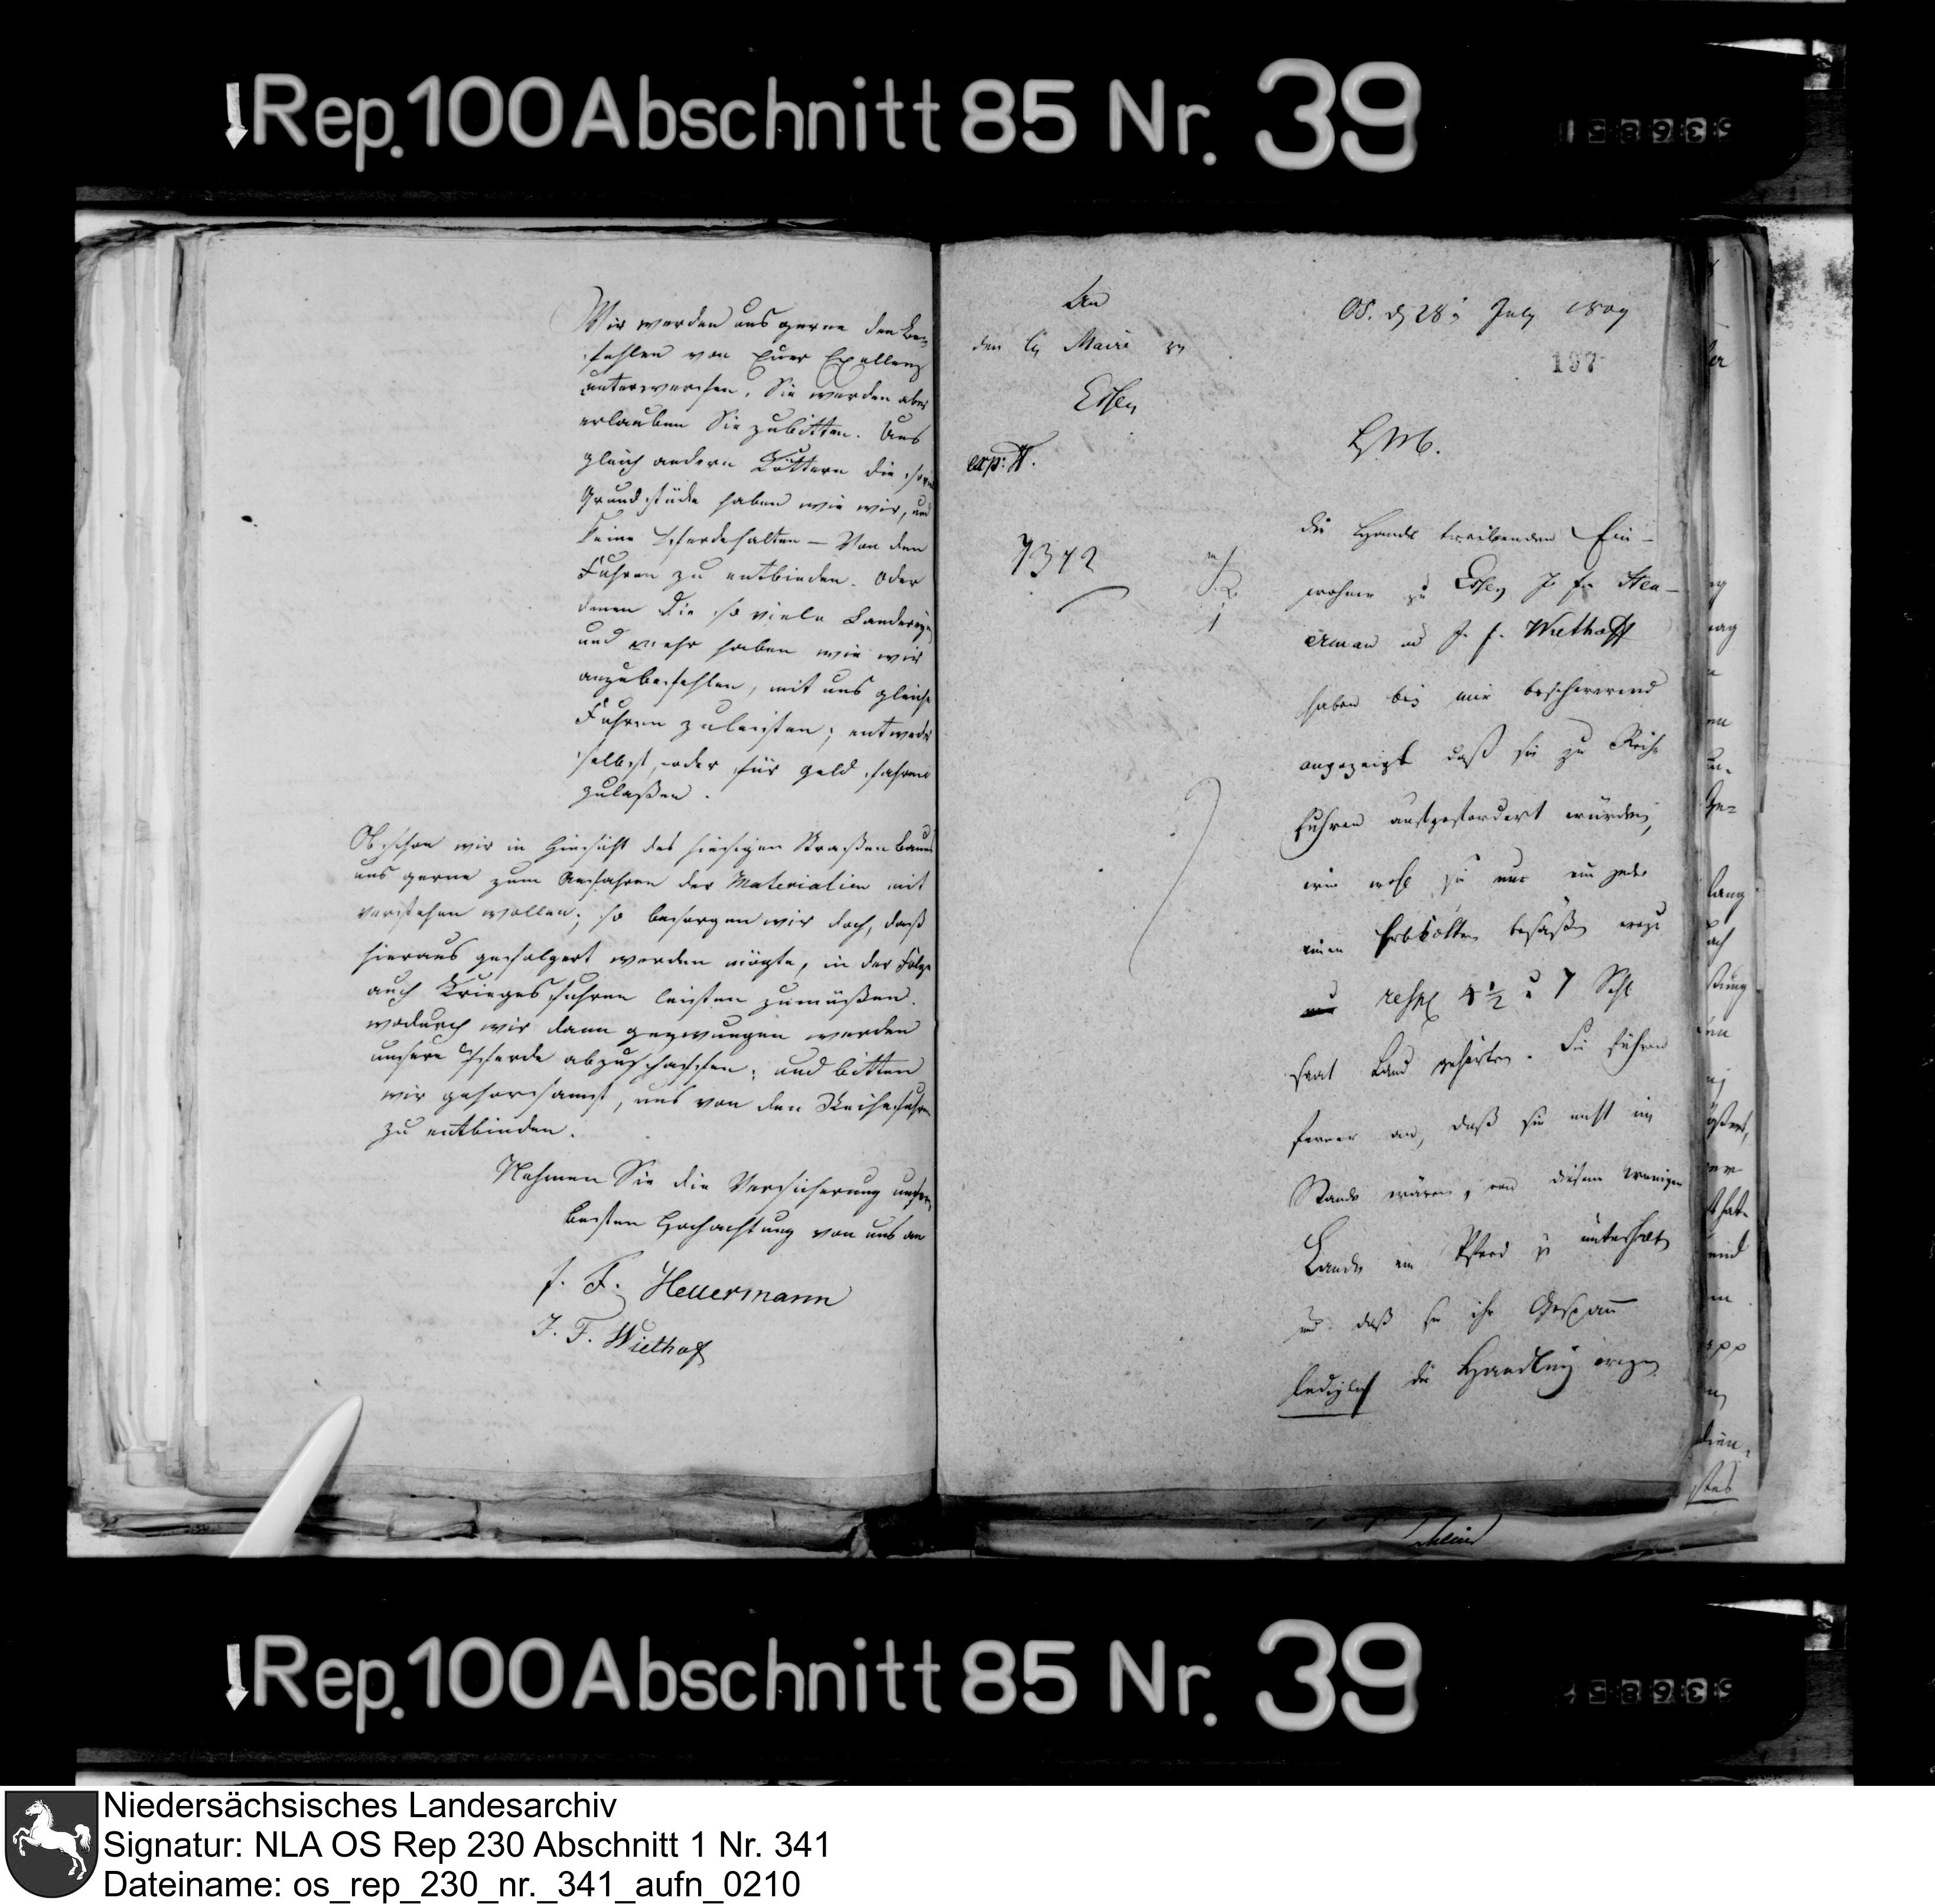 Rep. 100 Abschnitt 85 Nr. 39
Wir werden uns gerne den Be=
fehlen von Euer Exellenz
unterwerfen, Sie werden aber
erlauben Sie zubitten. Uns
gleich andern Köttern die so viel
Grundstücke haben wie wir, und
keine Pferdehalten – Von den
Fuhren zu entbinden. Oder
denen die so viele Landereyen
und mehr haben wie wir
anzubefehlen, mit uns gleiche
Fuhren zuleisten; entweder
selbst, oder für geld fahren
zulaßen.
Obschon wir in Hinsicht des hiesigen Straßenbaues
uns gerne zum Anfahren der Materialien mit
verstehen wollen; so besorgen wir doch, daß
hieraus gefolgert werden mögte, in der Folge
auch Kriegesfuhren leisten zumüßen.
wodurch wir dann gezwungen werden
unsere Pferde abzuschaffen; und bitten
wir gehorsamst, uns von den Reihefuhren
zu entbinden.
Nehmen Sie die Versicherung unsrer
besten Hochachtung von uns an
J. F. Hellermann
J. F. Wiethof
An
den H Maire zu
Essen
exp:
7372
Os. d 28 July 1809
197
die Handl treibenden Ein-
wohner zu Essen J. F.
und J. F. Wiethoff
haben bey mir beschwerend
angezeigt daß sie zu Reihe
Fuhren aufgefordert würden,
wie wohl sie nur ein jeder
einen Erbkotten besäßen wozu
resp 4 1/2 u 7 Schl
saat Land gehörten. Sie führen
ferner an, daß sie nicht im
Stande wären, von diesem wenigen
Lande ein Pferd zu unterhalten
und daß sie ihr Gespann
lediglich der Handlung wegen
Rep. 100 Abschnitt 85 Nr. 39
Niedersächsisches Landesarchiv
Signatur: NLA OS Rep 230 Abschnitt 1 Nr. 341
Dateiname: os_rep_230_nr._341_aufn_0210